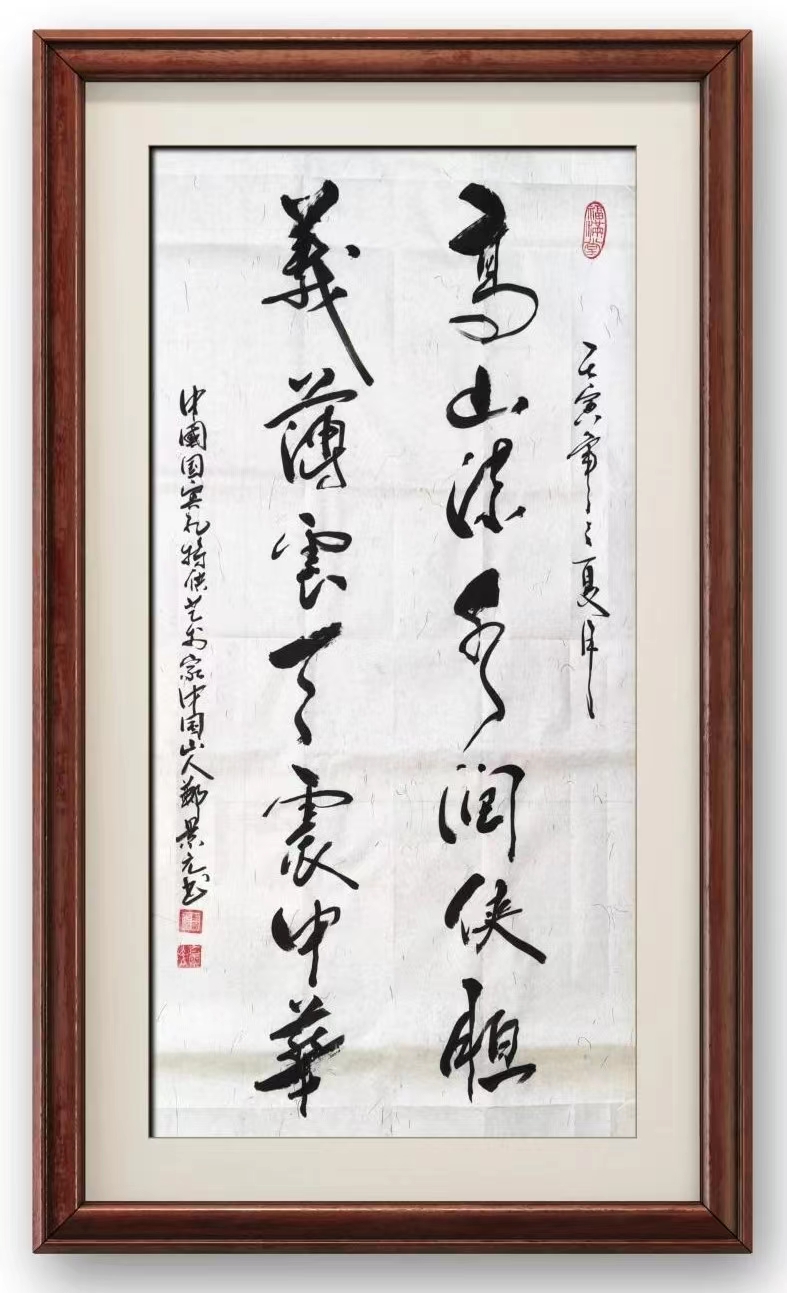 福满堂
壬寅年之夏月
高山流水润侠胆
義薄雲天震中華
中國国宾礼特供艺术家中国山人鄭景元书